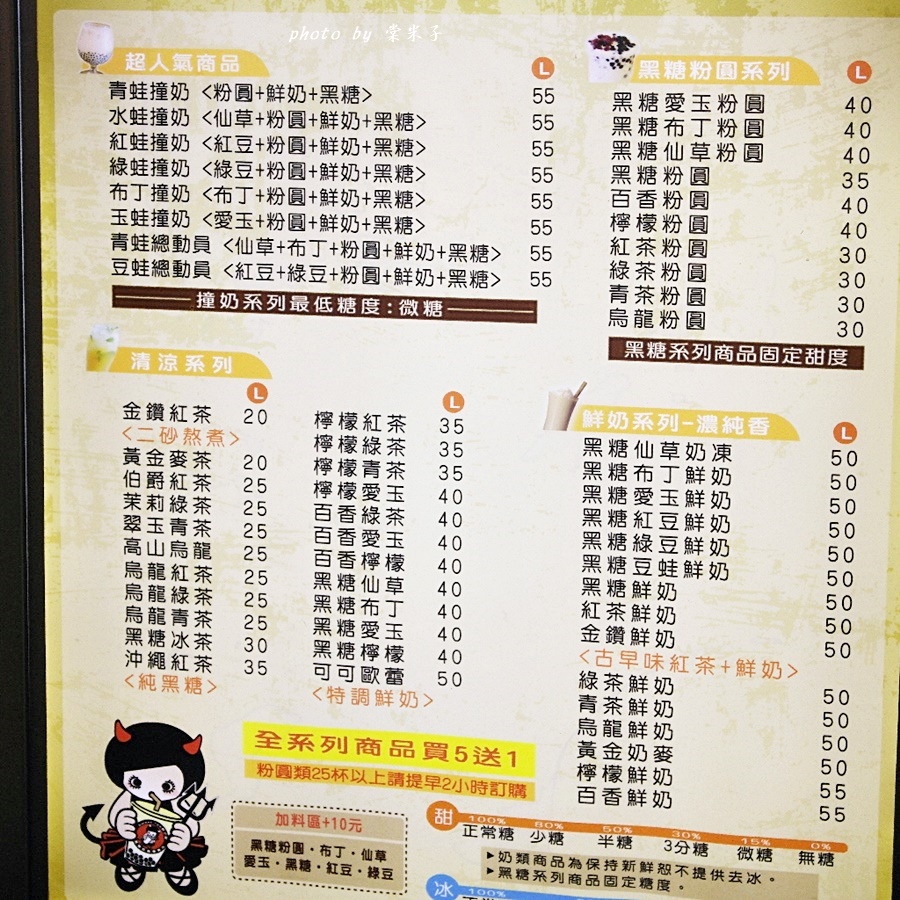 photo by 棠米子
超人氣商品 L
青蛙撞奶 <粉圓+鮮奶+黑糖> 55
水蛙撞奶 <仙草+粉圓+鮮奶+黑糖> 55
紅蛙撞奶 <紅豆+粉圓+鮮奶+黑糖> 55
綠蛙撞奶 <綠豆+粉圓+鮮奶+黑糖> 55
布丁撞奶 <布丁+粉圓+鮮奶+黑糖> 55
玉蛙撞奶 <愛玉+粉圓+鮮奶+黑糖> 55
青蛙總動員 <仙草+布丁+粉圓+鮮奶+黑糖> 55
豆蛙總動員 <紅豆+綠豆+粉圓+鮮奶+黑糖> 55
撞奶系列最低糖度:微糖
黑糖粉圓系列 L
黑糖愛玉粉圓 40
黑糖布丁粉圓 40
黑糖仙草粉圓 40
黑糖粉圓 35
百香粉圓 40
檸檬粉圓 40
紅茶粉圓 30
綠茶粉圓 30
青茶粉圓 30
烏龍粉圓 30
黑糖系列商品固定甜度
清涼系列
L
金鑽紅茶 20
<二砂熬煮>
黃金麥茶 20
伯爵紅茶 25
茉莉綠茶 25
翠玉青茶 25
高山烏龍 25
烏龍紅茶 25
烏龍綠茶 25
烏龍青茶 25
黑糖冰茶 30
沖繩紅茶 35
<純黑糖>
L
檸檬紅茶 35
檸檬綠茶 35
檸檬青茶 35
檸檬愛玉 40
百香綠茶 40
百香愛玉 40
百香檸檬 40
黑糖仙草 40
黑糖布丁 40
黑糖愛玉 40
黑糖檸檬 40
可可歐蕾 50
<特調鮮奶>
鮮奶系列-濃純香 L
黑糖仙草奶凍 50
黑糖布丁鮮奶 50
黑糖愛玉鮮奶 50
黑糖紅豆鮮奶 50
黑糖綠豆鮮奶 50
黑糖豆蛙鮮奶 50
黑糖鮮奶 50
紅茶鮮奶 50
金鑽鮮奶 50
<古早味紅茶+鮮奶>
綠茶鮮奶 50
青茶鮮奶 50
烏龍鮮奶 50
黃金奶麥 50
檸檬鮮奶 55
百香鮮奶 55
全系列商品買5送1
粉圓類25杯以上請提早2小時訂購
加料區+10元
黑糖粉圓・布丁・仙草
愛玉・黑糖・紅豆・綠豆
甜 100% 80% 50% 30% 15% 0%
正常糖 少糖 半糖 3分糖 微糖 無糖
▶奶類商品為保持新鮮恕不提供去冰。
▶黑糖系列商品固定糖度。
冰 100%